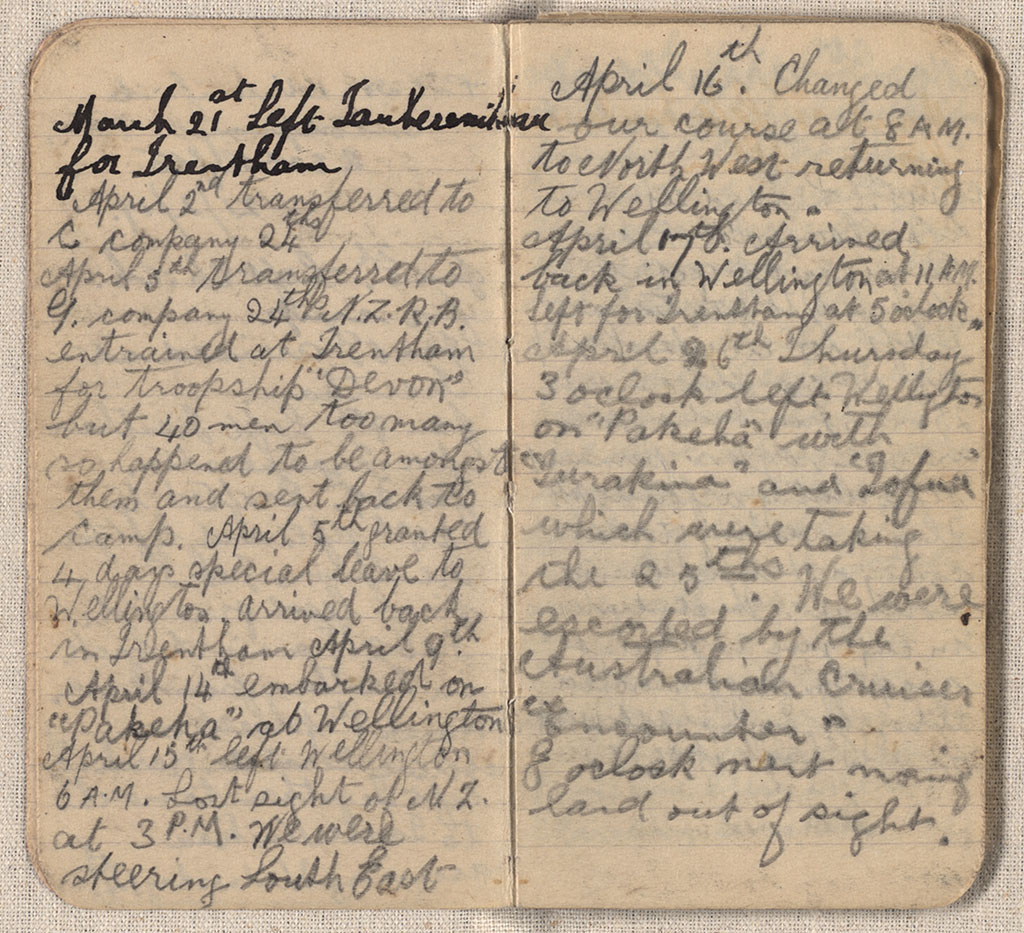 March 21st Left Tauherenikau
for Trentham
April 2nd transferred to
C company 24ths
April 5th transferred to
G. company 24ths N.Z.R.B.
entrained at Trentham
for troopship "Devon"
but 40 men too many
so happened to be amongst
them and sent back to
camp. April 5th granted
4 days special leave to
Wellington. arrived back
in Trentham April 9th.
April 14th embarked on
"Pakeha" at Wellington
April 15th left Wellington
6 A.M. Lost sight of N.Z.
at 3 P.M. We were
steering South East
April 16th. Changed
our course at 8 A.M.
to North West returning
to Wellington.
April 17th. Arrived
back in Wellington at 11 A.M.
left for Trentham at 5 oclock
April 26th Thursday
3 oclock left Wellington
on "Pakeha" with
"Turakina" and "Tofua"
which were taking
the 25ths. We were
escorted by the
Australian Cruiser
"Encounter"
8 oclock next morning
land out of sight.